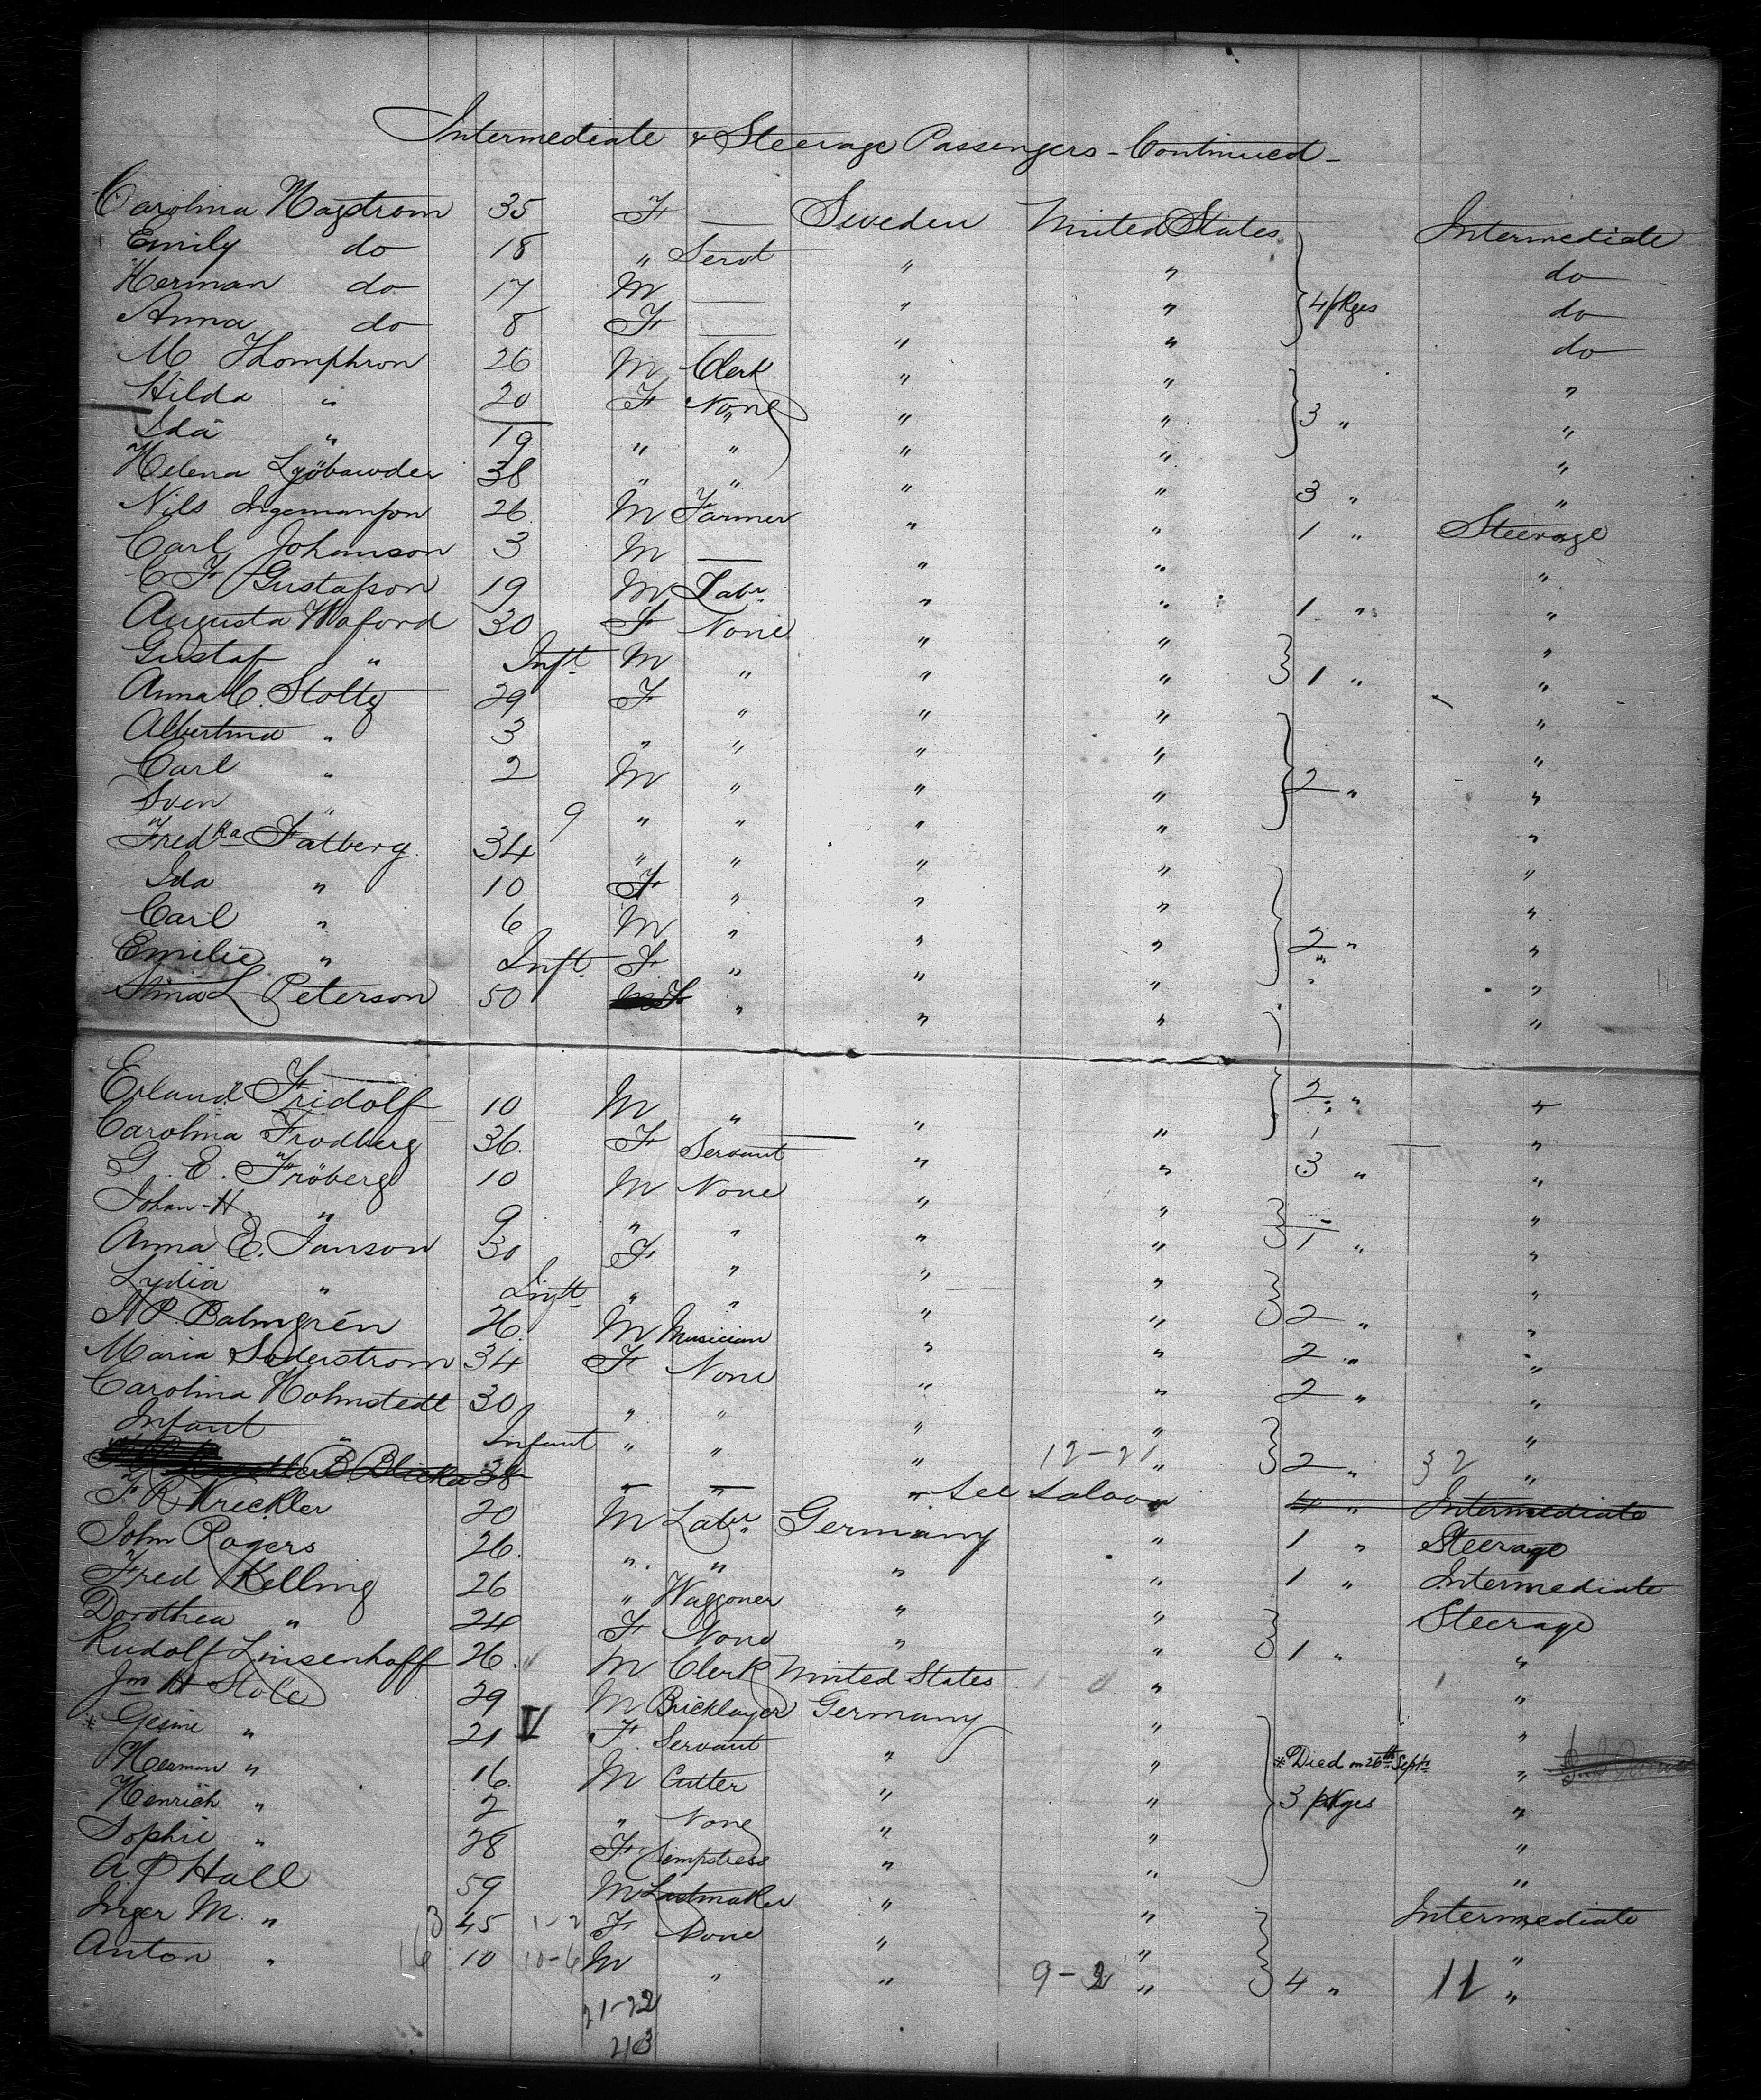 Intermediate & Steerage Passengers - Continued -
Carolina Hagstrom 35 F — Sweden United States Intermediate
Emily do 18 " Servt " " do
Herman do 17 M — " " 4 pkges do
Anna do 8 F — " " do
M Thomphron 26 M Clerk " " "
Hilda " 20 F None " " 3 " "
Ida " 19 " " " " "
Helena 38 " " " " 3 " "
Nils Ingemanson 26 M Farmer " " 1 " Steerage
Carl Johanson 3 M — " " "
C F Gustafson 19 M Labr " " 1 " "
Augusta Waford 30 F None " " "
Gustaf " Inft M " " " 1 " "
Anna C. Stolty 29 F " " " "
Albertina " 3 " " " " "
Carl " 2 M " " " 2 " "
Sven " 9 " " " " "
Fredka Fatberg 34 " " " " "
Ida " 10 F " " " "
Carl " 6 M " " " 2 " "
Emilie " Inft F " " " "
Stina L Peterson 50 F " " " "
Erland Fridolf 10 M " " " 2 " "
Carolina Frodberg 36 F Servant " " 3 " "
G. E. Fröberg 10 M None " " "
Johan H. " 9 " " " " 1 " "
Anna E. Janson 30 F " " " "
Lydia " Inft " " " " 2 " "
A P. Palmgrén 26 M Musician " " 2 " "
Maria Soderstrom 34 F None " " 2 " "
Carolina Holmstedt 30 " " " " "
Infant " Infant " " " 12-21 " 2 " 32 "
B. Blicka 38 " " " See Saloon 4 " Intermediate
F R Kreckler 20 M Labr Germany " 1 " Steerage
John Rogers 26 " " " " 1 " Intermediate
Fred Kelling 26 " Waggoner " " Steerage
Dorothea " 24 F None " " 1 " "
Rudolf Linsenhoff 26 M Clerk United States " "
Jn H Stole 29 M Bricklayer Germany " "
* Gesine " 21 V F Servant " " * Died on 26th Septr "
Herman " 16 M Cutter " " 3 pkges "
Henrich " 2 " None " " "
Sophie " 28 F Sempstress " " "
A. P Hall 59 M Lastmaker " " Intermediate
Inger M. " 3 45 1-2 F None " " "
Anton " 16 10 10-6 M " " 9-2 " 4 " 11 "
21-22
213